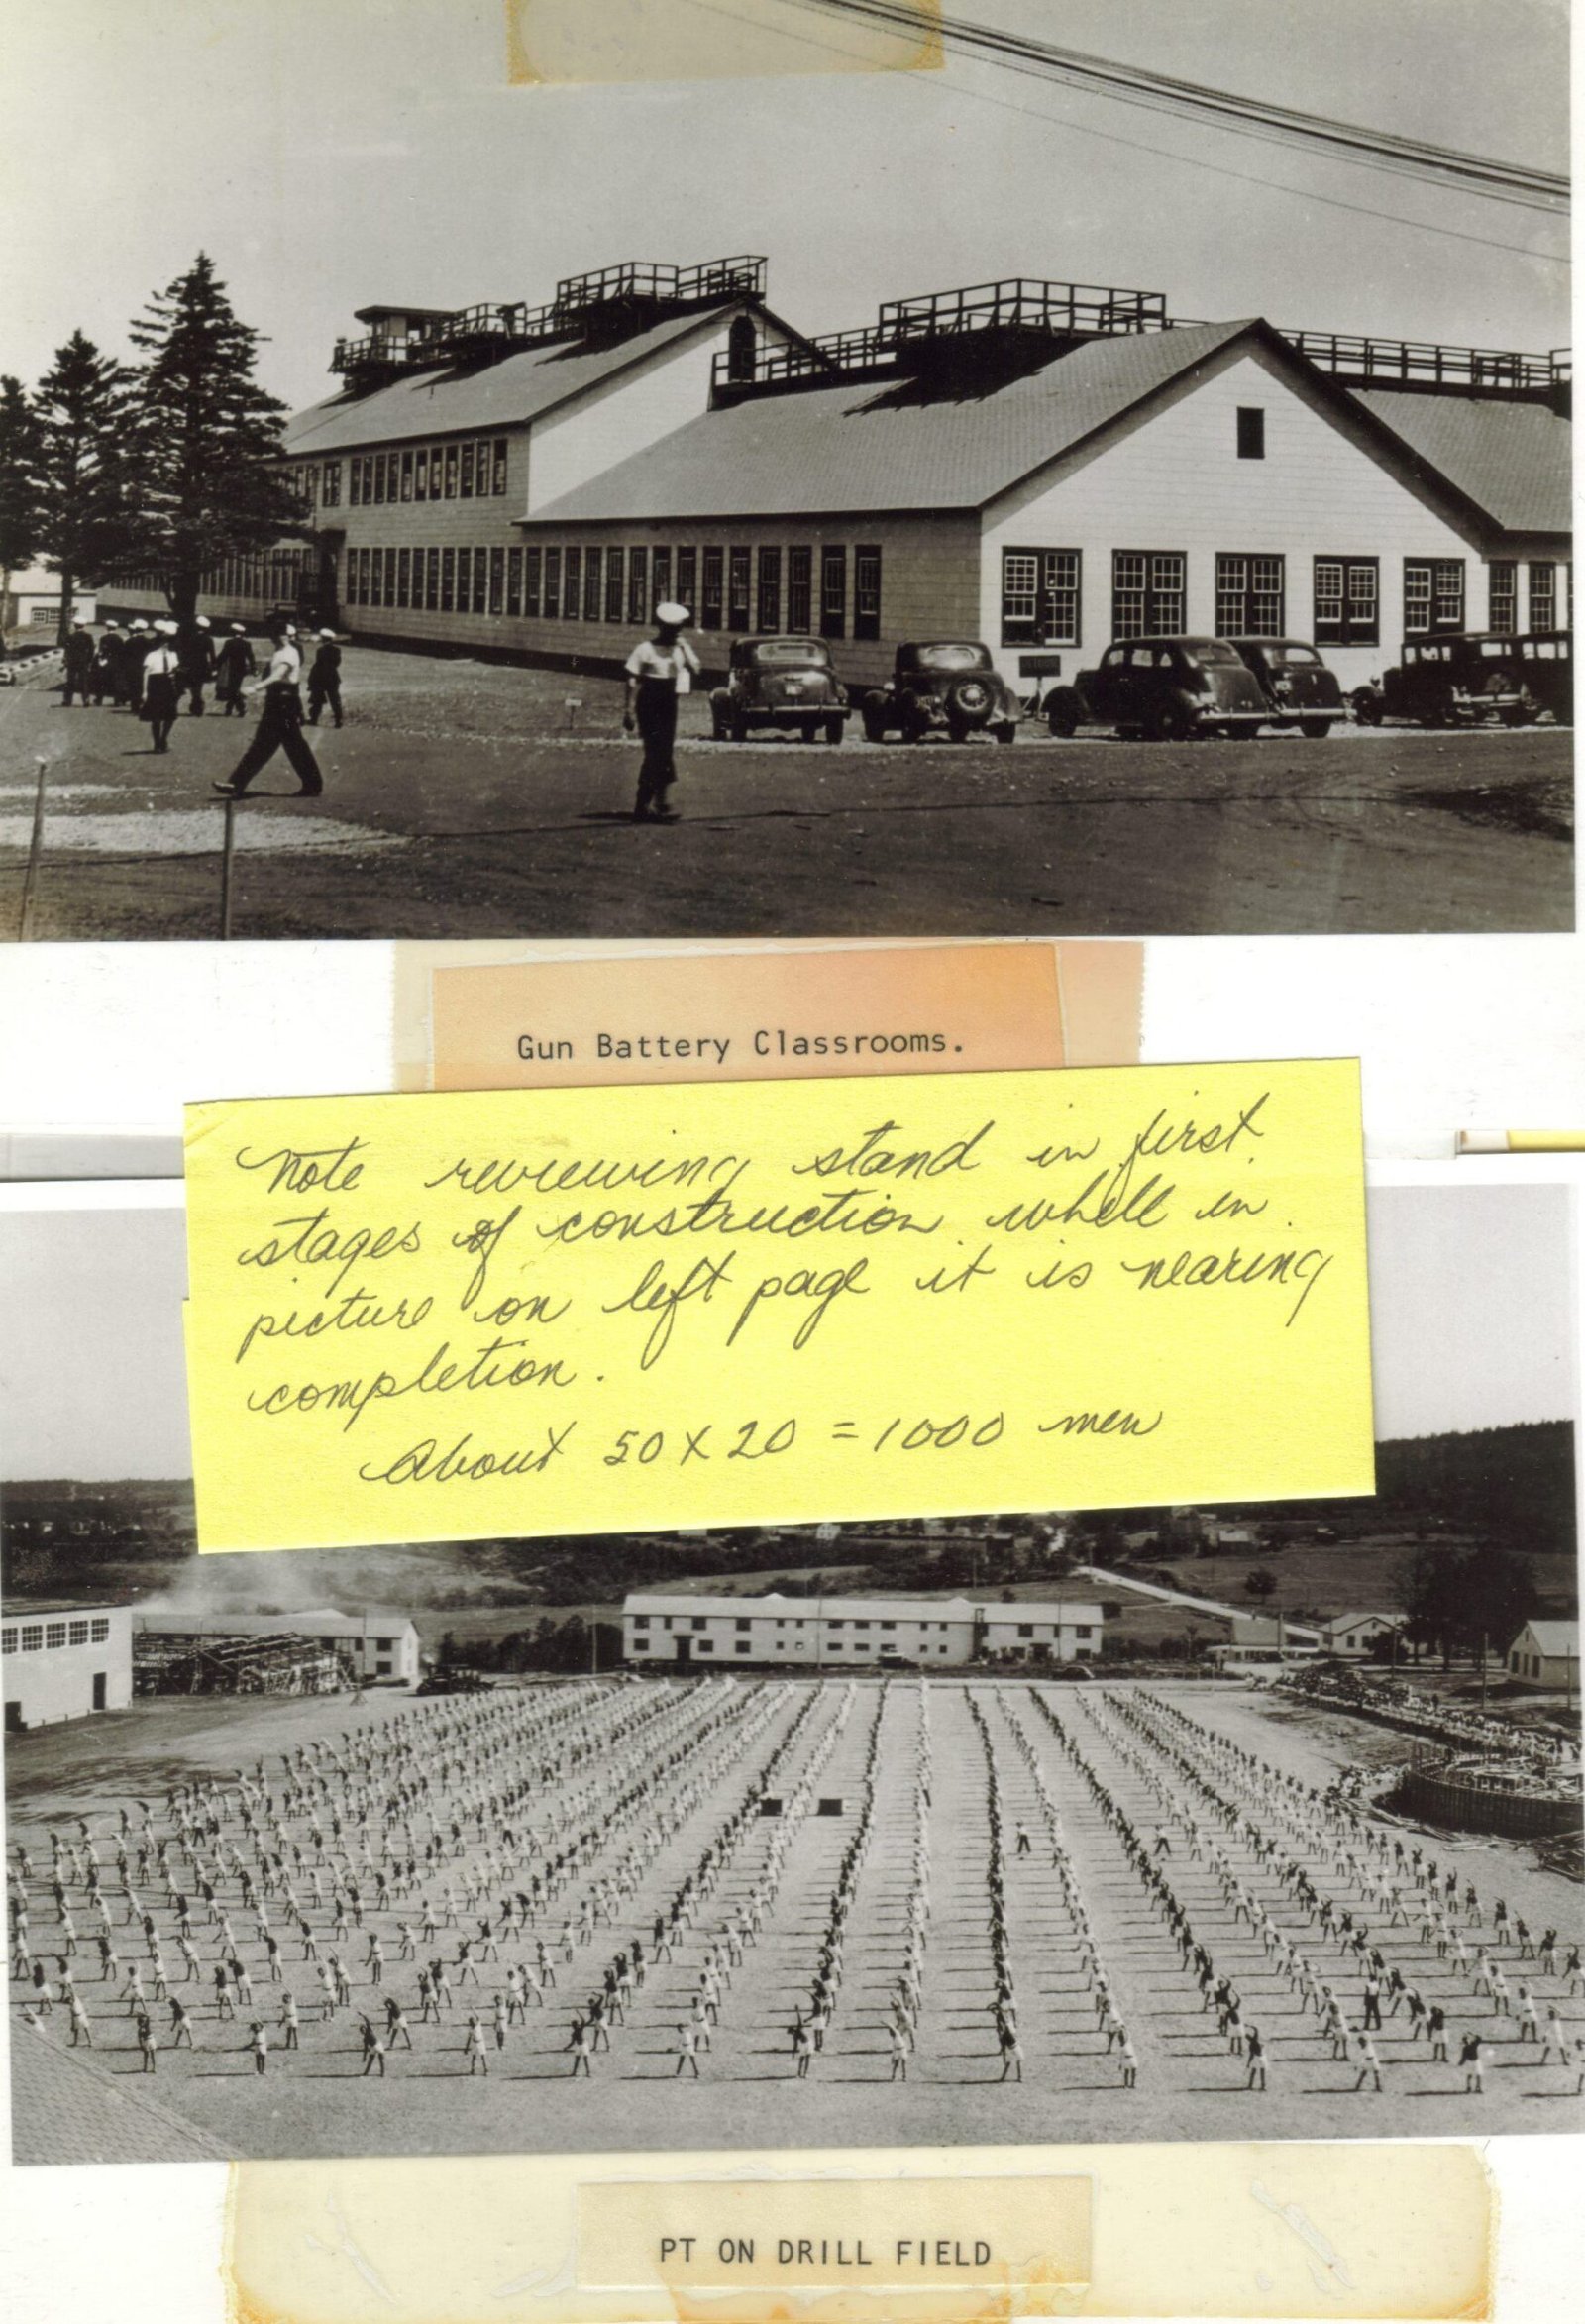 Gun Battery Classrooms.
Note reviewing stand in first
stages of construction while in
picture on left page it is nearing
completion.
About 50 X 20 = 1000 men
PT ON DRILL FIELD